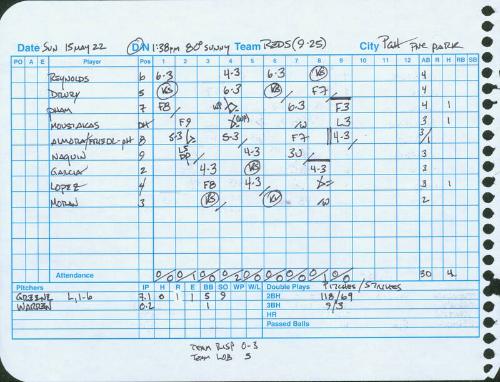 Date SUN 15 MAY 22 D/N 1:38PM 80° SUNNY Team REDS (9-25) City PGH PNC PARK
PO A E Player Pos 1 2 3 4 5 6 7 8 9 AB R H RB SB
REYNOLDS 6 6-3 4-3 6-3 K 4
DRURY 5 K 6-3 K F7 4
PHAM 7 F8 6-3 F3 4 1
MOUSTAKAS DH F9 W L3 3 1
ALMORA/FRIEDL-PH 8 5-3 5-3 F7 4-3 3/1
NAQUIN 9 4-3 3U 3
GARCIA 2 4-3 KS 4-3 3
LOPEZ 4 F8 4-3 3 1
MORAN 3 KS W 2
Attendance 0/0 0/1 0/0 0/2 0/0 0/0 0/0 0/1 0/0 30 4
Pitchers IP H R E BB SO WP W/L Double Plays PITCHES/STRIKES
GREENE L, 1-6 7.1 0 1 1 5 9 2BH 118/69
WARREN 0.2 1 3BH 9/3
HR
Passed Balls
TEAM RISP 0-3
TEAM LOB 5